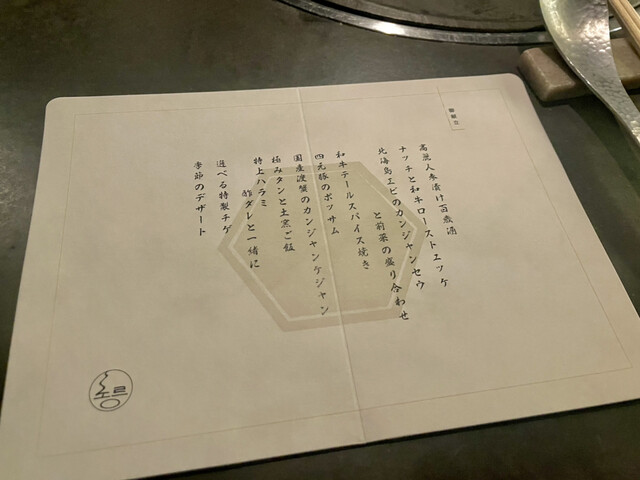 御献立
高麗人参漬け百歳酒
ナッチと和牛ローストエッケ
北海島エビのカンジャンセウ
と前菜の盛り合わせ
和牛テールスパイス焼き
四元豚のポッサム
国産渡蟹のカンジャンケジャン
極みタンと土窯ご飯
特上ハラミ
鮨ダレと一緒に
選べる特製チゲ
季節のデザート